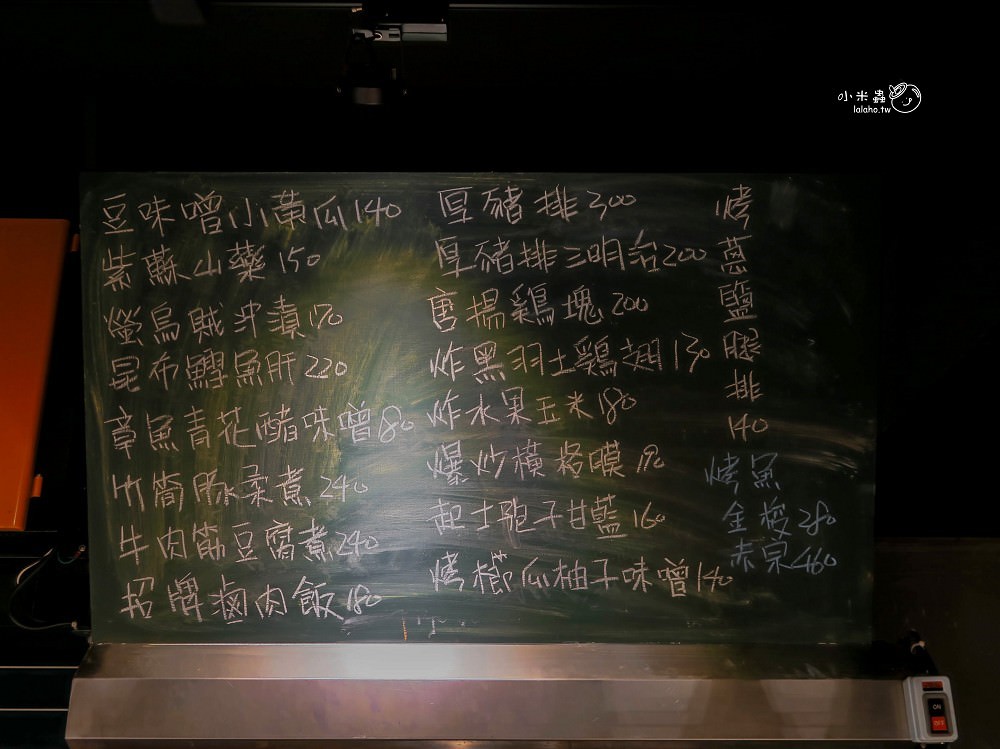 小米蟲
lalaho.tw
豆味噌小黃瓜140
紫蘇山藥150
螢烏賊沖漬170
昆布鱈魚肝220
章魚青花醋味噌80
竹筒豚柔煮240
牛肉筋豆腐煮240
招牌滷肉飯180
厚豬排300
厚豬排三明治200
唐揚鶏塊200
炸黑羽土鶏翅130
炸水果玉米180
爆炒橫格膜190
起士孢子甘藍160
烤櫛瓜柚子味噌140
烤
蔥
鹽
腿
排
140
烤魚
金梭280
赤宗460
ON
OFF